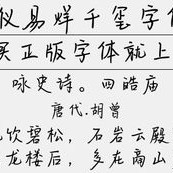 仪易烊千玺字
买正版字体就上
咏史诗。四皓庙
唐代.胡曾
饮碧松，石岩云殿
龙楼后，多在商山